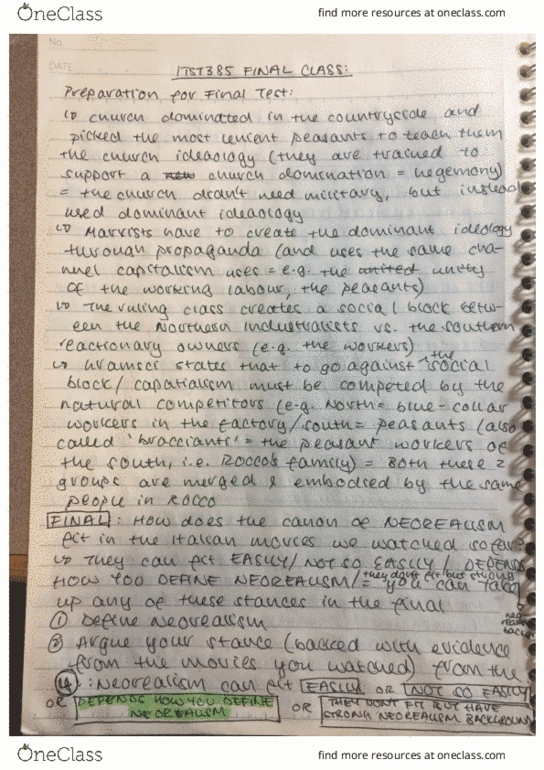 OneClass
find more resources at oneclass.com
No.
DATE
ITST385 FINAL CLASS:
Preparation for Final Test:
↳ church dominated in the countryside and
picked the most lenient peasants to teach them
the church ideaology (they are trained to
support a new church domination = hegemony)
= the church didn't need military, but instead
used dominant ideaology
↳ Marxists have to create the dominant ideology
through propaganda (and uses the same cha-
nnel capitalism uses = e.g. the united unity
of the working labour, the peasants)
↳ The ruling class creates a social block betw-
een the Northern industrialists vs. the southern
reactionary owners (e.g. the workers)
↳ Gramsci states that to go against the social
block/capatialism must be competed by the
natural competitors (e.g. North = blue-collar
workers in the factory/south = peasants (also
called 'braccianti' = the peasant workers of
the south, i.e. Rocco's family) = Both these 2
groups are merged & embodied by the same
people in ROCCO
FINAL: HOW does the canon of NEOREALISM
fit in the Italian movies we watched so far?
↳ They can fit EASILY/NOT SO EASILY/DEPENDS
HOW YOU DEFINE NEOREALISM/they don't fit but strong = you can take
up any of these stances in the final
① Define Neorealism
② Argue your stance (backed with evidence
from the movies you watched) from the
4: Neorealism can fit EASILY OR NOT SO EASILY
OR DEPENDS HOW YOU DEFINE NEOREALISM OR THEY DON'T FIT BUT HAVE STRONG NEOREALISM BACKGROUND
OneClass
find more resources at oneclass.com